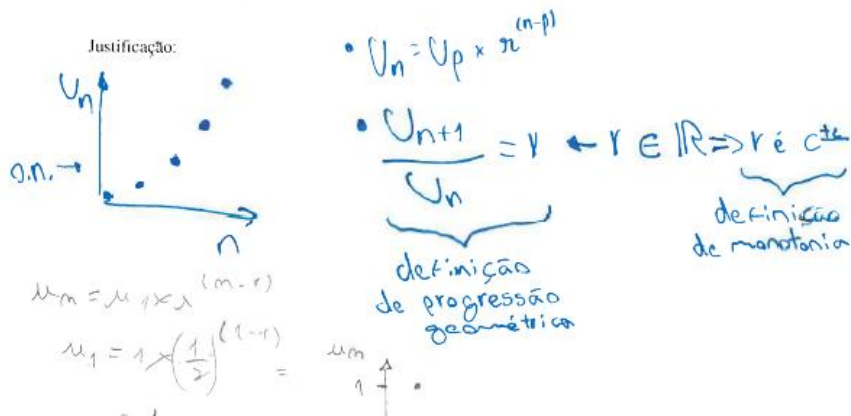 Justificação:
• Un = Up × r^(n-p)
Un
• Un+1 / Un = r ← r ∈ ℝ => r é c^te
n
definição
de progressão
geométrica
definição
de monotonia
un = u1 × r^(n-1)
u1 = 1 × (1/2)^(1-1) =
un
1